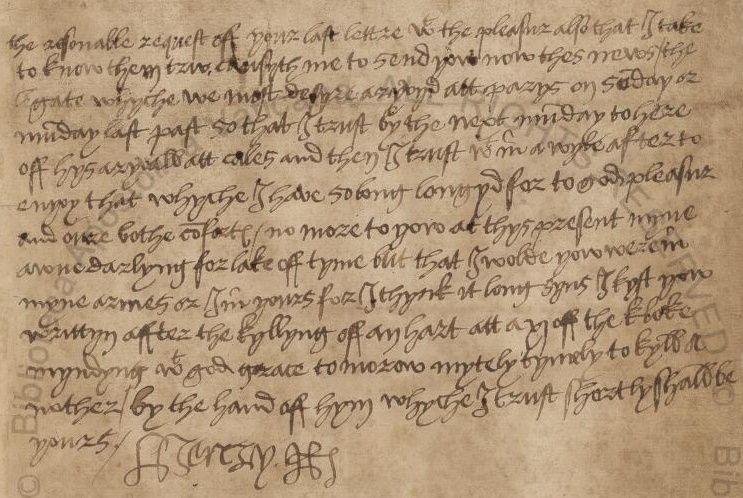 the resonable request off your last lettre wt the pleasur also that I take
to know them trw causyth me to send yow now thes news the
legate whyche we most desyre aryvyd att parys on sōday or
mūday last past so that I trust by the next mūday to here
off hys aryvall att cales and then I trust wt in a wyle after to
enyoy that whyche I have so long longyd for to god pleasur
and oure bothe cōfort no more to yow at thys present myne
awne darlyng for lake off tyme but that I wolde yow were in
myne armes or I in yours for I thynk it long syns I kyst yow
writtyn affter the kyllyng off an hart att a xj off the kloke
myndyng wt god grace tomorow mytely tymely to kyll a
nother by the hand off hym whyche I trust shortly shallbe
yours
Henry R
© Biblioteca ALL RIGHTS RESERVED Bib